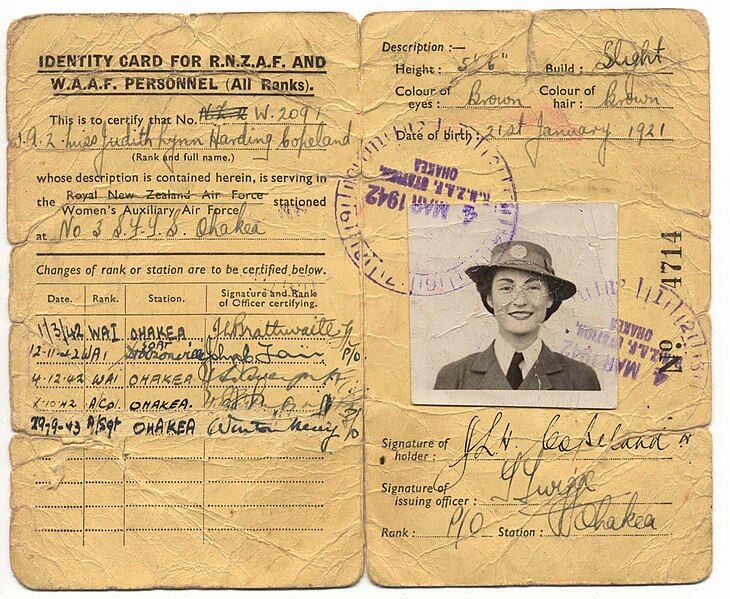 IDENTITY CARD FOR R.N.Z.A.F. AND
W.A.A.F. PERSONNEL (All Ranks).
This is to certify that No. W.2091
Miss Judith Lynn Harding Copeland
(Rank and full name.)
whose description is contained herein, is serving in
the Royal New Zealand Air Force
Women's Auxiliary Air Force stationed
at No 3 S.F.T.S. Ohakea
Changes of rank or station are to be certified below.
Date. Rank. Station. Signature and Rank of Officer certifying.
1/3/42 WAI OHAKEA
12-11-42 WAI
4-12-42 WAI OHAKEA
10.42 ACpl OHAKEA.
29-9-43 A/Sgt OHAKEA
Description :—
Height: 5' 6" Build: Slight
Colour of eyes: Brown Colour of hair: Brown
Date of birth: 21st January 1921
R.N.Z.A.F. STATION,
OHAKEA
4 MAR 1942
No 4714
R.N.Z.A.F. STATION,
OHAKEA
4 MAR 1942
Signature of holder: J L H Copeland
Signature of issuing officer:
Rank: P/O Station: Ohakea